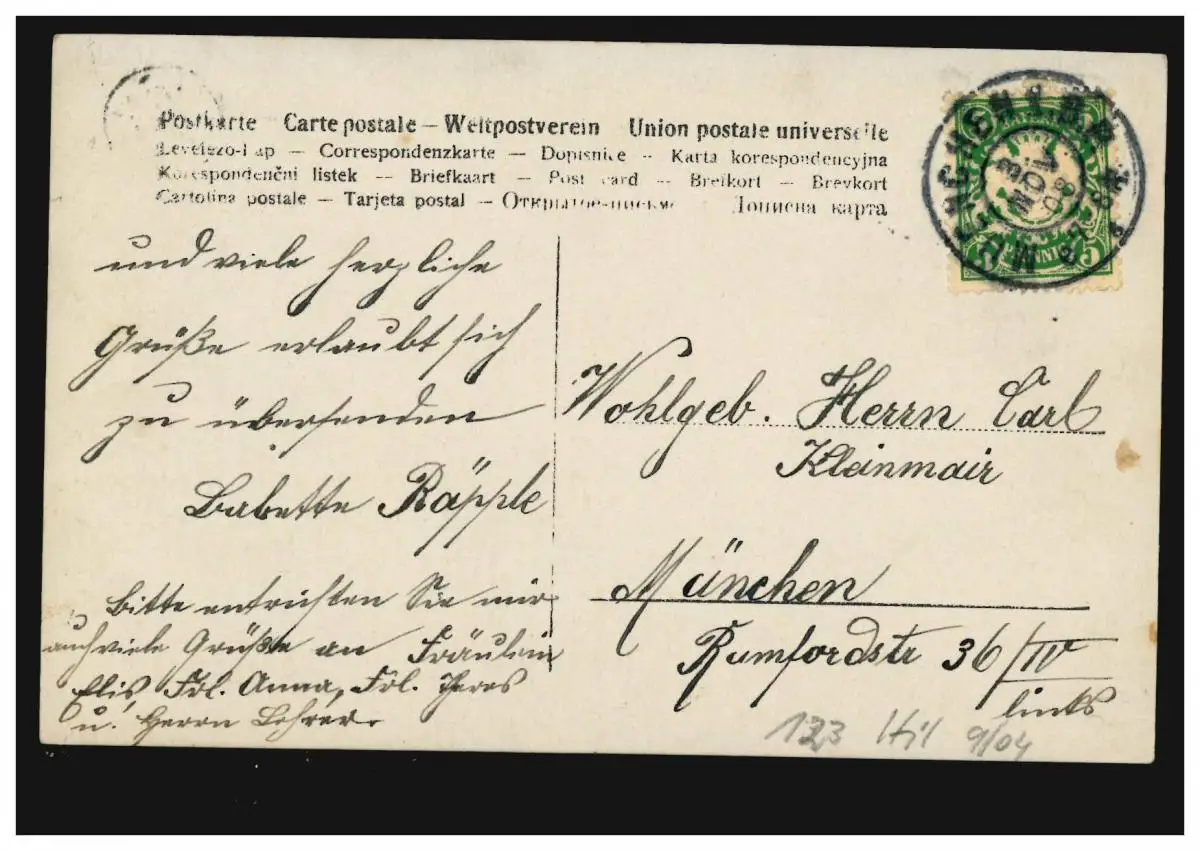 Postkarte Carte postale – Weltpostverein Union postale universelle
Levelező-Lap – Correspondenzkarte – Dopisnice – Karta korespondencyjna
Korespondenční listek – Briefkaart – Post card – Brefkort – Brevkort
Cartolina postale – Tarjeta postal – Открытое письмо Дописна карта
und viele herzliche
Grüße erlaubt sich
zu übersenden
Babette Räpple
Bitte entrichten Sie mir
auch viele Grüße an Fräulein
Elis, Frl. Anna, Frl. Theres
u. Herrn Lehrer.
MUENCHEN
NOV
08
5
PFENNIG
Wohlgeb. Herrn Carl
Kleinmair
München
Rumfordstr 36/IV
links
123 Hil 9/04